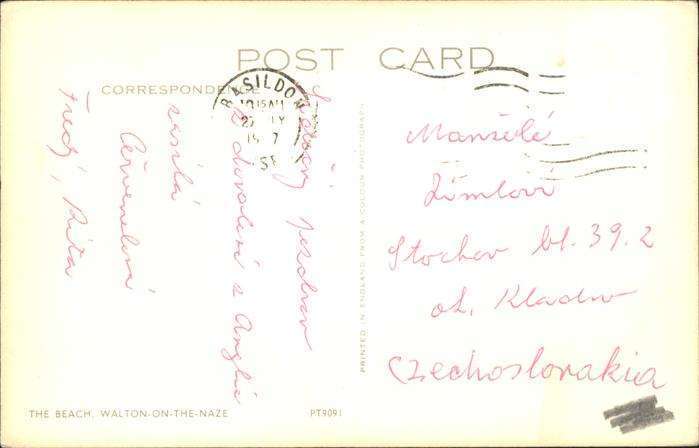 POST CARD
CORRESPONDENCE
BASILDON
10 15 AM
Srdečný pozdrav
z dovolené z Anglie
zasílá
Červenkovi
Fredy, Rita
Manželé
Zímlovi
Stochov bl. 39. 2
ok. Kladno
Czechoslovakia
PRINTED IN ENGLAND FROM A COLOUR PHOTOGRAPH
THE BEACH, WALTON-ON-THE-NAZE
PT9091